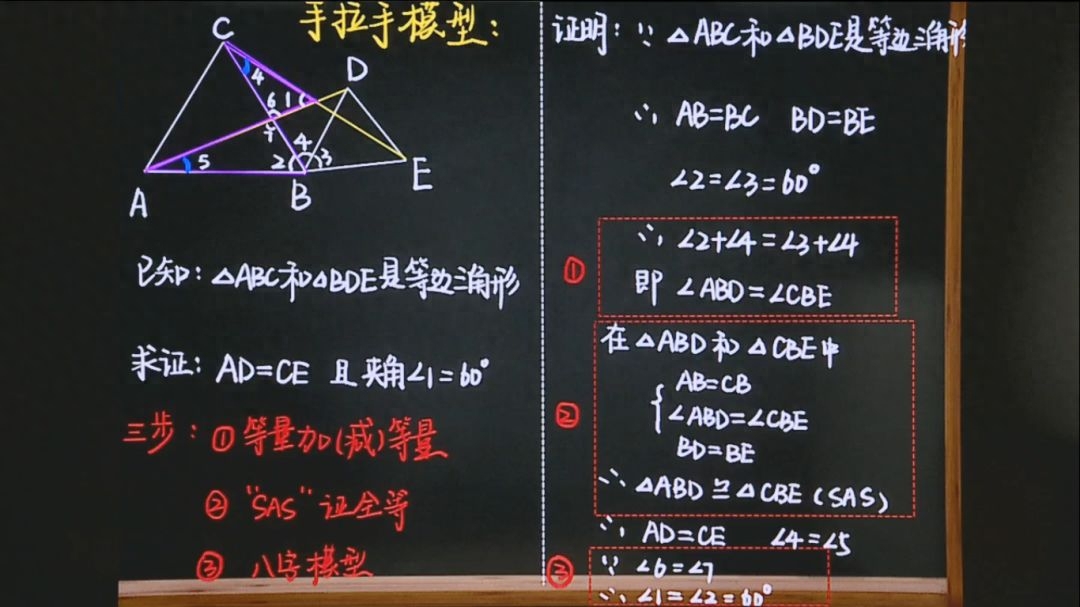 手拉手模型：
C
D
4
6 1
7
4
5
2
3
A
B
E
已知：△ABC和△BDE是等边三角形
求证：AD=CE 且夹角∠1=60°
三步：①等量加(减)等量
②"SAS"证全等
③八字模型
证明：∵△ABC和△BDE是等边三角形
∴ AB=BC BD=BE
∠2=∠3=60°
① ∴ ∠2+∠4=∠3+∠4
即 ∠ABD=∠CBE
在△ABD和△CBE中
AB=CB
② ∠ABD=∠CBE
BD=BE
∴ △ABD≌△CBE(SAS)
∴ AD=CE ∠4=∠5
③ ∵ ∠6=∠7
∴ ∠1=∠2=60°